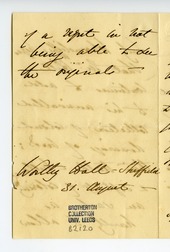 of a regret in not
being able to see
the original —
Wortley Hall. Sheffield
31. August —
BROTHERTON
COLLECTION
UNIV. LEEDS
82120